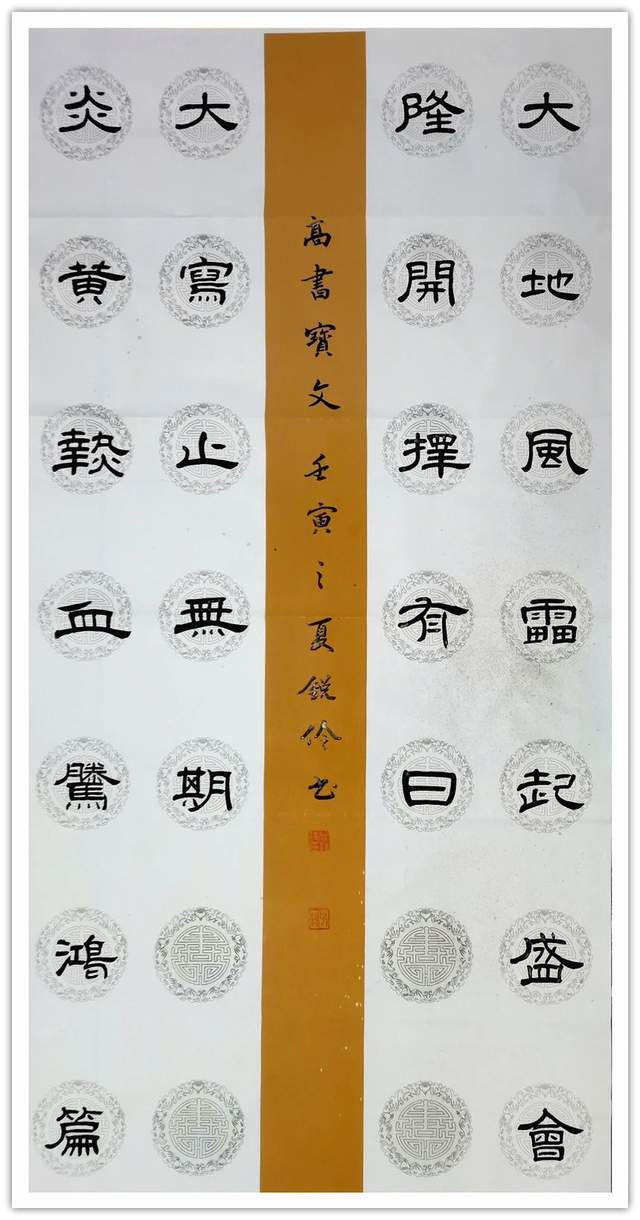 大地風雷起盛會
隆開擇有日
炎黄熱血騰鴻篇
大寫止無期
高書寶文 壬寅之夏 銳伶書